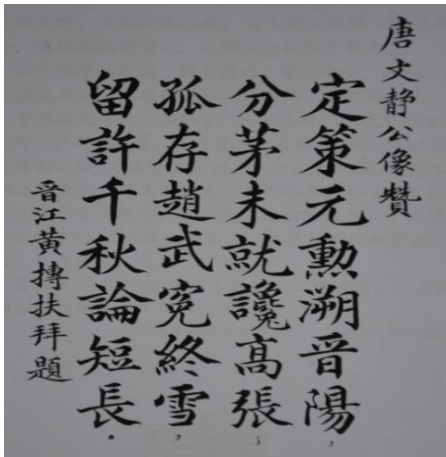 唐文靜公像贊
定策元勲溯晉陽,
分茅未就讒高張;
孤存趙武寃終雪,
留許千秋論短長.
晉江黃摶扶拜題